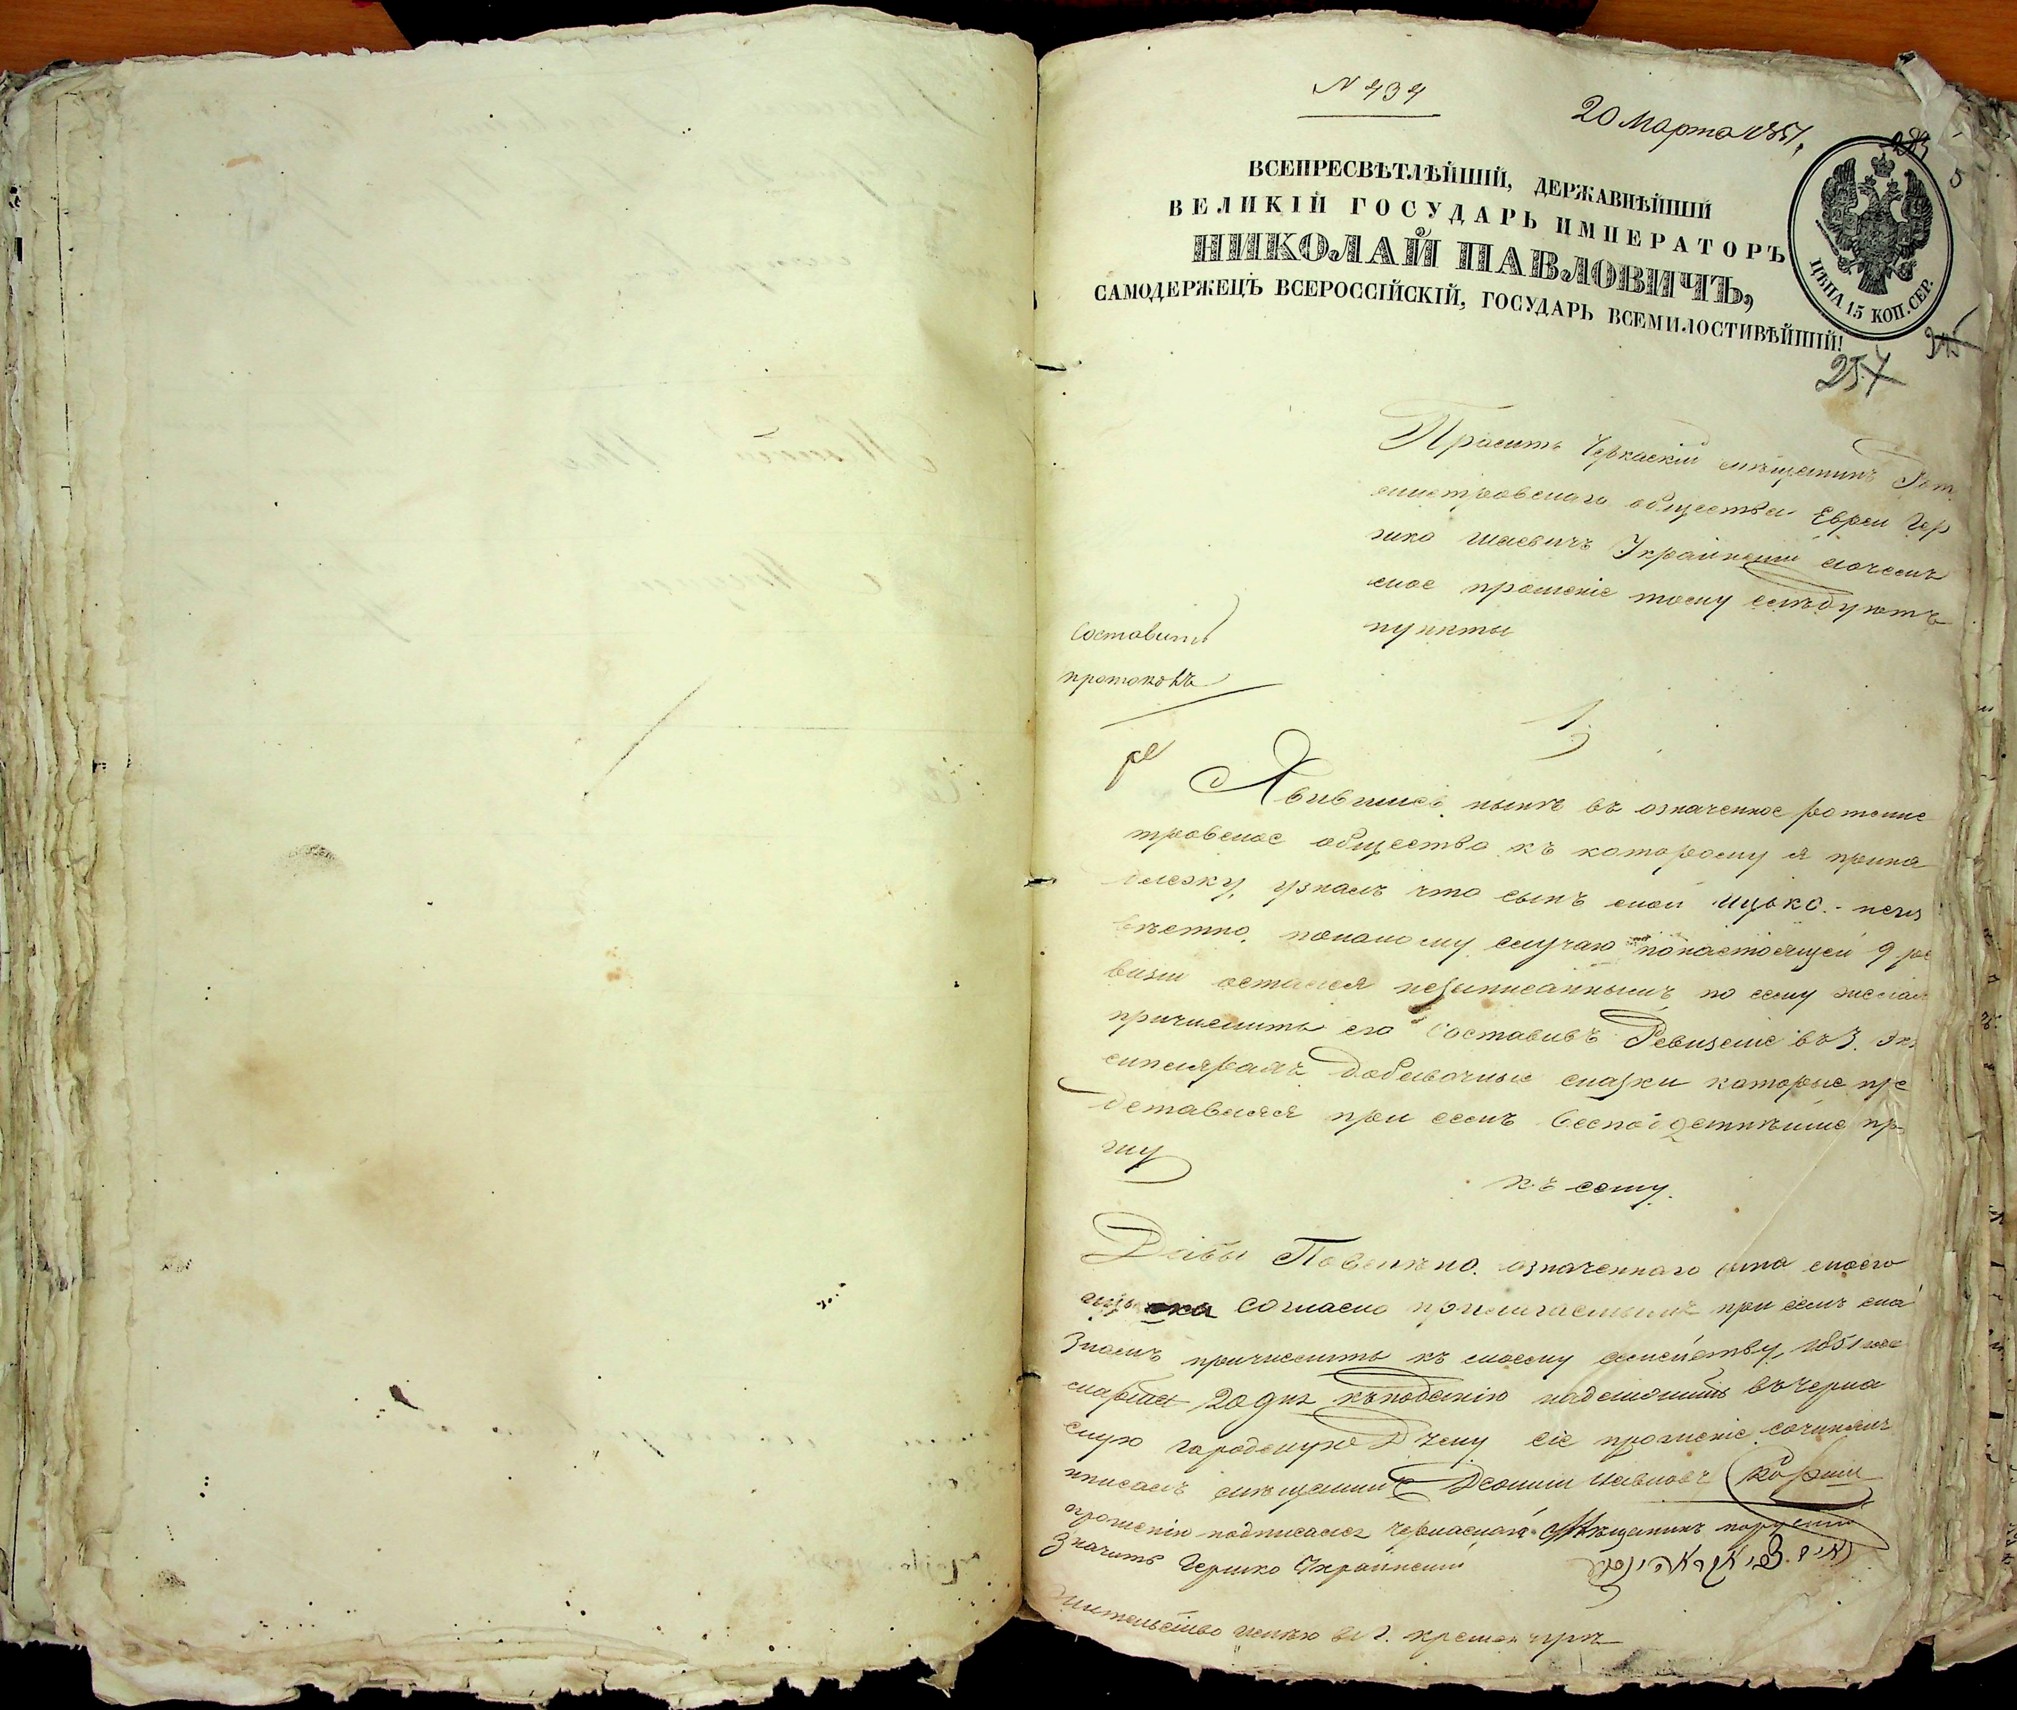 N 434
20 Марта 1851.
ВСЕПРЕСВѢТЛѢЙШІЙ, ДЕРЖАВНѢЙШІЙ
ВЕЛИКІЙ ГОСУДАРЬ ИМПЕРАТОРЪ
НИКОЛАЙ ПАВЛОВИЧЪ,
САМОДЕРЖЕЦЪ ВСЕРОССІЙСКІЙ, ГОСУДАРЬ ВСЕМИЛОСТИВѢЙШІЙ!
ЦѢНА 15 КОП. СЕР.
257
Проситъ Черкаскій мѣщанинъ Рот
мистровскаго общества Еврей Гер
шко Шаевичъ Украинскій очемъ
мое прошеніе тому слѣдуютъ
пункты
Составить
протоколъ
1.
Явившись нынѣ въ означенное ротмис
тровское общество къ которому я прина
длежу, узналъ что сынъ мой Ицько неиз
вѣстно по какому случаю по настоящей 9 ре
визіи остался незаписаннымъ по сему желая
причислить его Составивъ Ревизскіе въ 3. Экз
емплярахъ добавочные сказки которые пре
дставляя при семъ Всеподданнѣйше пр
шу
къ сему.
Дабы Повелѣно означенного сына моего
Ицька согласно прилагаемымъ при семъ ска
зкамъ причислить къ моему семейству 1851 года
марта 20 дня къ поданію надлежитъ въ Черка
скую городскую Думу сіе прошеніе сочинялъ
и писалъ мѣщанинъ
прошенію подписался Черкаскій Мѣщанинъ
значитъ Гершко Украинскій
жительство имѣю въ г. Кременчугѣ